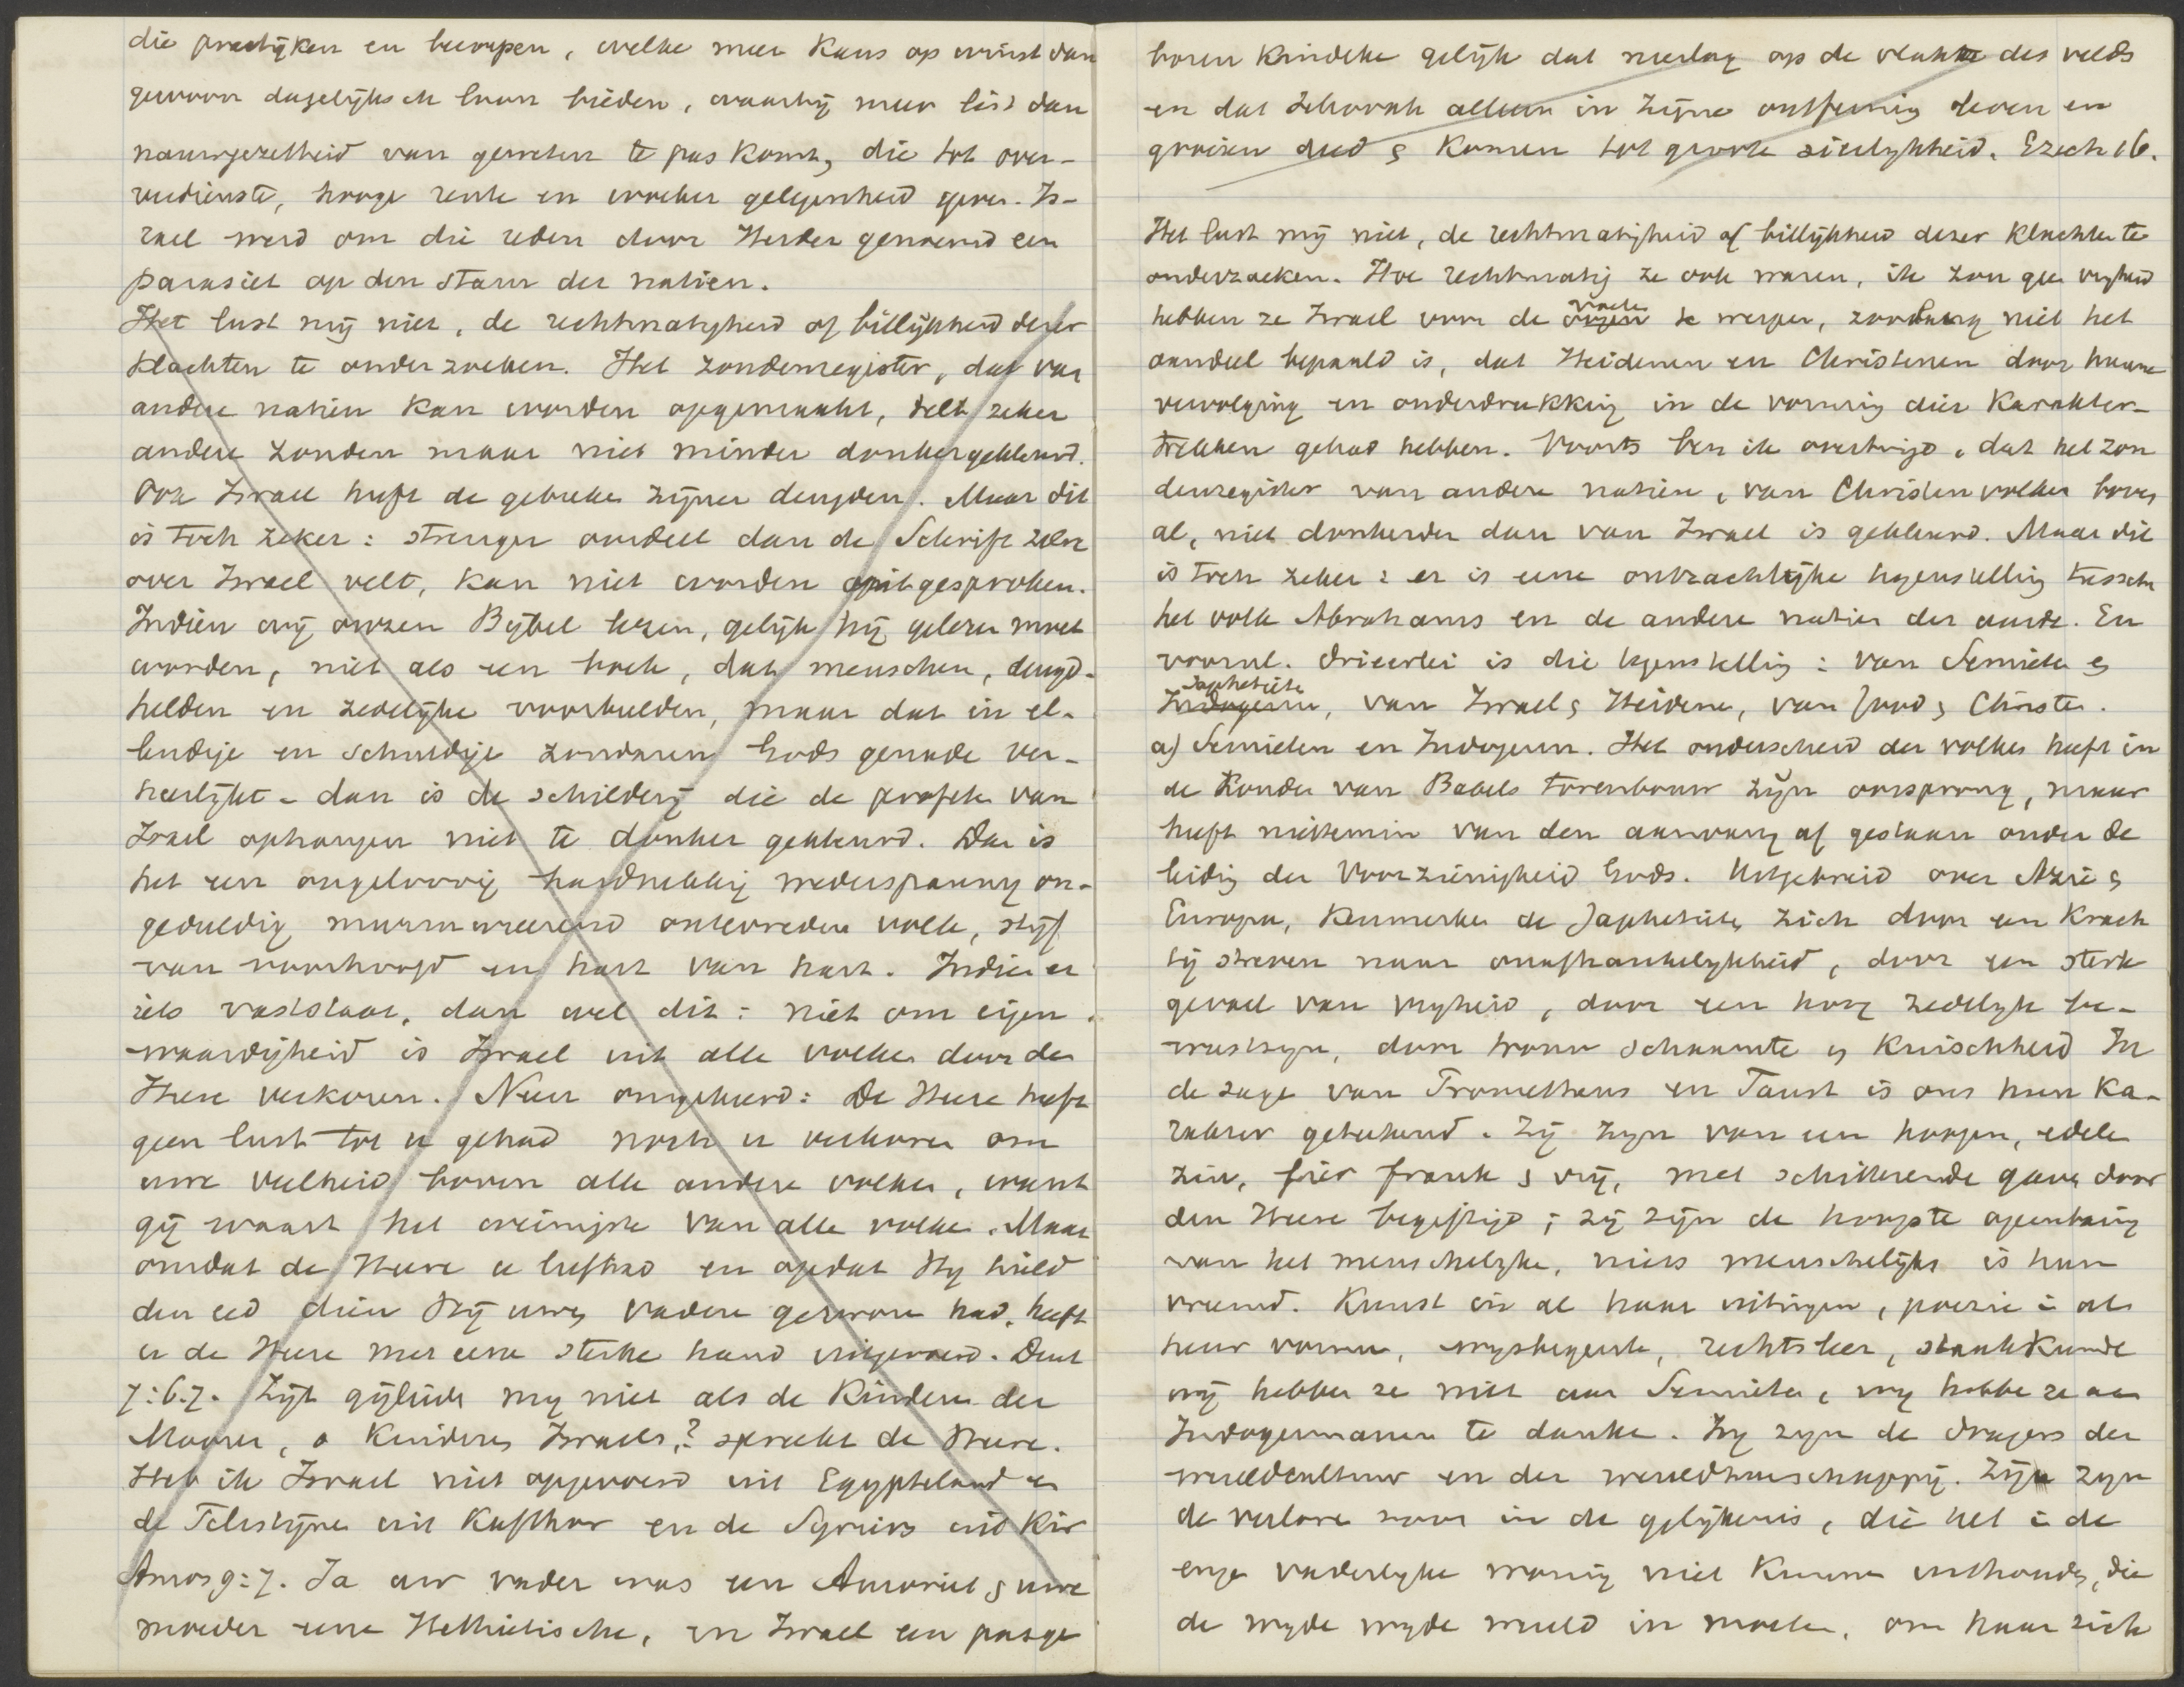 die practijken en beroepen, welke meer kans op winst dan
gewoon dagelijksch loon bieden, waarbij meer list dan
nauwgezetheid van geweten te pas komt, die tot over-
verdienste, hooge rente en woeker gelegenheid geven. Is-
rael werd om die reden door Herder genoemd een
parasiet op den stam der natien.
Het lust mij niet, de rechtmatigheid of billijkheid dezer
klachten te onderzoeken. Het zondenregister, dat van
andere natien kan worden opgemaakt, telt zeker
andere zonden maar niet minder donker gekleurd.
Ook Israel heeft de gebreken zijner deugden. Maar dit
is toch zeker: strenger oordeel dan de Schrift zelve
over Israel velt, kan niet worden uitgesproken.
Indien wij onzen Bijbel lezen, gelijk hij gelezen moet
worden, niet als een boek, dat menschen, deugd-
helden en zedelijke voorbeelden, maar dat in el-
lendige en schuldige zondaren Gods genade ver-
heerlijkt - dan is de schilderij die de profeten van
Israel ophangen niet te donker gekleurd. Dan is
het een ongeloovig hardnekkig wederspannig on-
geduldig murmureerend ontevreden volk, stijf
van voorhoofd en hart van hart. Indien er
iets vaststaat, dan wel dit: niet om eigen
waardigheid is Israel uit alle volken door den
Heere verkoren. Neen omgekeerd: De Heere heeft
geen lust tot u gehad noch u verkoren om
uwe veelheid boven alle andere volken, want
gij waart het weinigste van alle volken. Maar
omdat de Heere u liefhad en opdat Hij hield
den eed dien Hij uwen vaderen gezworen had, heeft
u de Heere met eene sterke hand uitgevoerd. Deut
7:6.7. Zijt gijlieden mij niet als de kinderen der
Mooren, o kinderen Israels? spreekt de Heere.
Heb ik Israel niet opgevoerd uit Egypteland en
de Filistijnen uit Kafthor en de Syriers uit Kir
Amos 9:7. Ja uw vader was een Amoriet & uwe
moeder eene Hethietische, en Israel een pasge
boren kindeke gelijk dat neerlag op de vlakte des velds
en dat Jehovah alleen in zijne ontferming leven en
groeien deed & komen tot groote sierlijkheid. Ezech 16.
Het lust mij niet, de rechtmatigheid of billijkheid dezer klachten te
onderzoeken. Hoe rechtmatig ze ook waren, ik zou geen vrijheid
hebben ze Israel voor de oogen voeten te werpen, zoolang niet het
aandeel bepaald is, dat Heidenen en Christenen door hunne
vervolging en onderdrukking in de vorming dier karakter-
trekken gehad hebben. Voorts ben ik overtuigd, dat het zon
denregister van andere natien, van Christenvolken boven
al, niet donkerder dan van Israel is gekleurd. Maar dit
is toch zeker: er is eene ontzachlijke tegenstelling tusschen
het volk Abrahams en de andere natien der aarde. En
vooral drieerlei is die tegenstelling: van Semieten &
Indogerm Japhetieten, van Israel & Heidenen, van Jood & Christen.
a) Semieten en Indogerm. Het onderscheid der volken heeft in
de zonde van Babels torenbouw zijn oorsprong, maar
heeft niettemin van den aanvang af gestaan onder de
leiding der Voorzienigheid Gods. Uitgebreid over Azie &
Europa, kenmerken de Japhetieten zich door een krach
tig streven naar onafhankelijkheid, door een sterk
gevoel van vrijheid, door een hoog zedelijk be-
wustzijn, door trouw schaamte en kuischheid In
de sage van Prometheus en Faust is ons hun ka-
rakter geteekend. Zij zijn van een hoogen, edelen
zin, fier frank & vrij, met schitterende gaven door
den Heere begiftigd; zij zijn de hoogste openbaring
van het menschelijke, niets menschelijks is hun
vreemd. Kunst in al haar uitingen, poezie in al
heur vormen, wijsbegeerte, rechtsleer, staatkunde
wij hebben ze niet aan Semieten, wij hebben ze aan
Indogermanen te danken. Zij zijn de dragers der
wereldcultuur en der wereldheerschappij. Zij zijn
de verloren zoon in de gelijkenis, die het in de
enge vaderlijke woning niet kunnen uithouden, die
de wijde wijde wereld in moeten, om haar zich